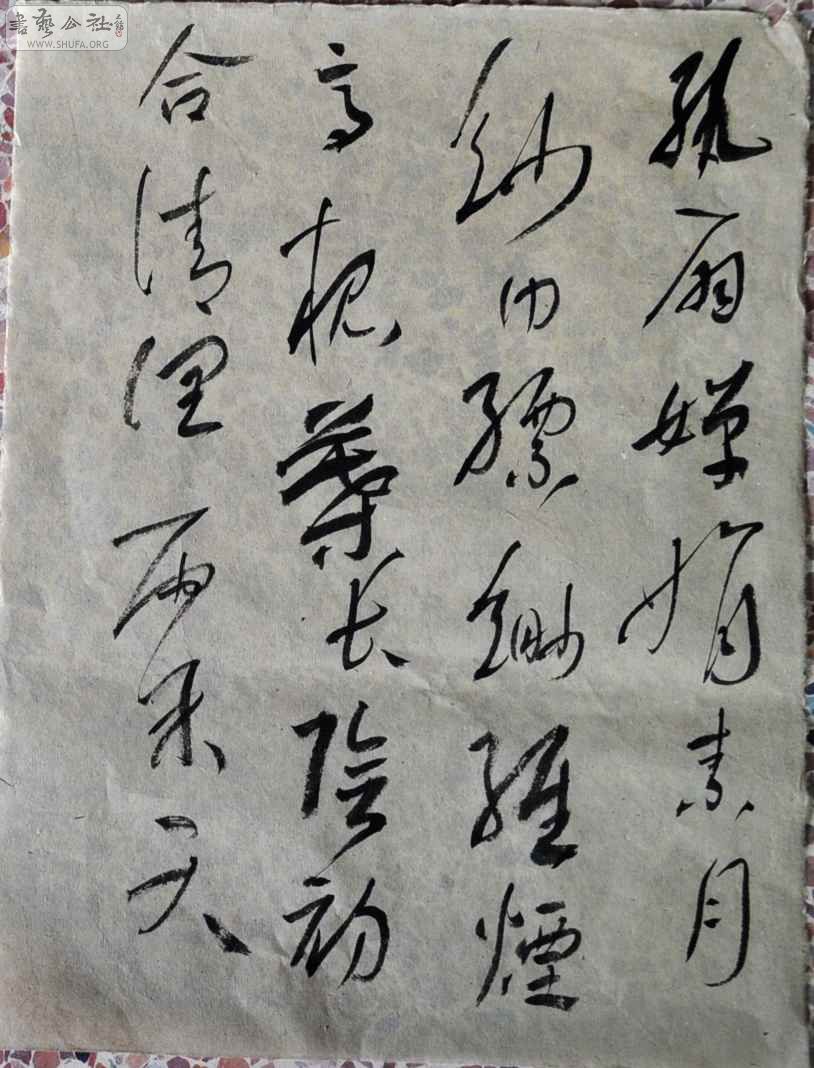 書藝公社
WWW.SHUFA.ORG
紈扇嬋娟素月
紗巾縹緲煙
高槐葉長陰初
合清潤雨来天